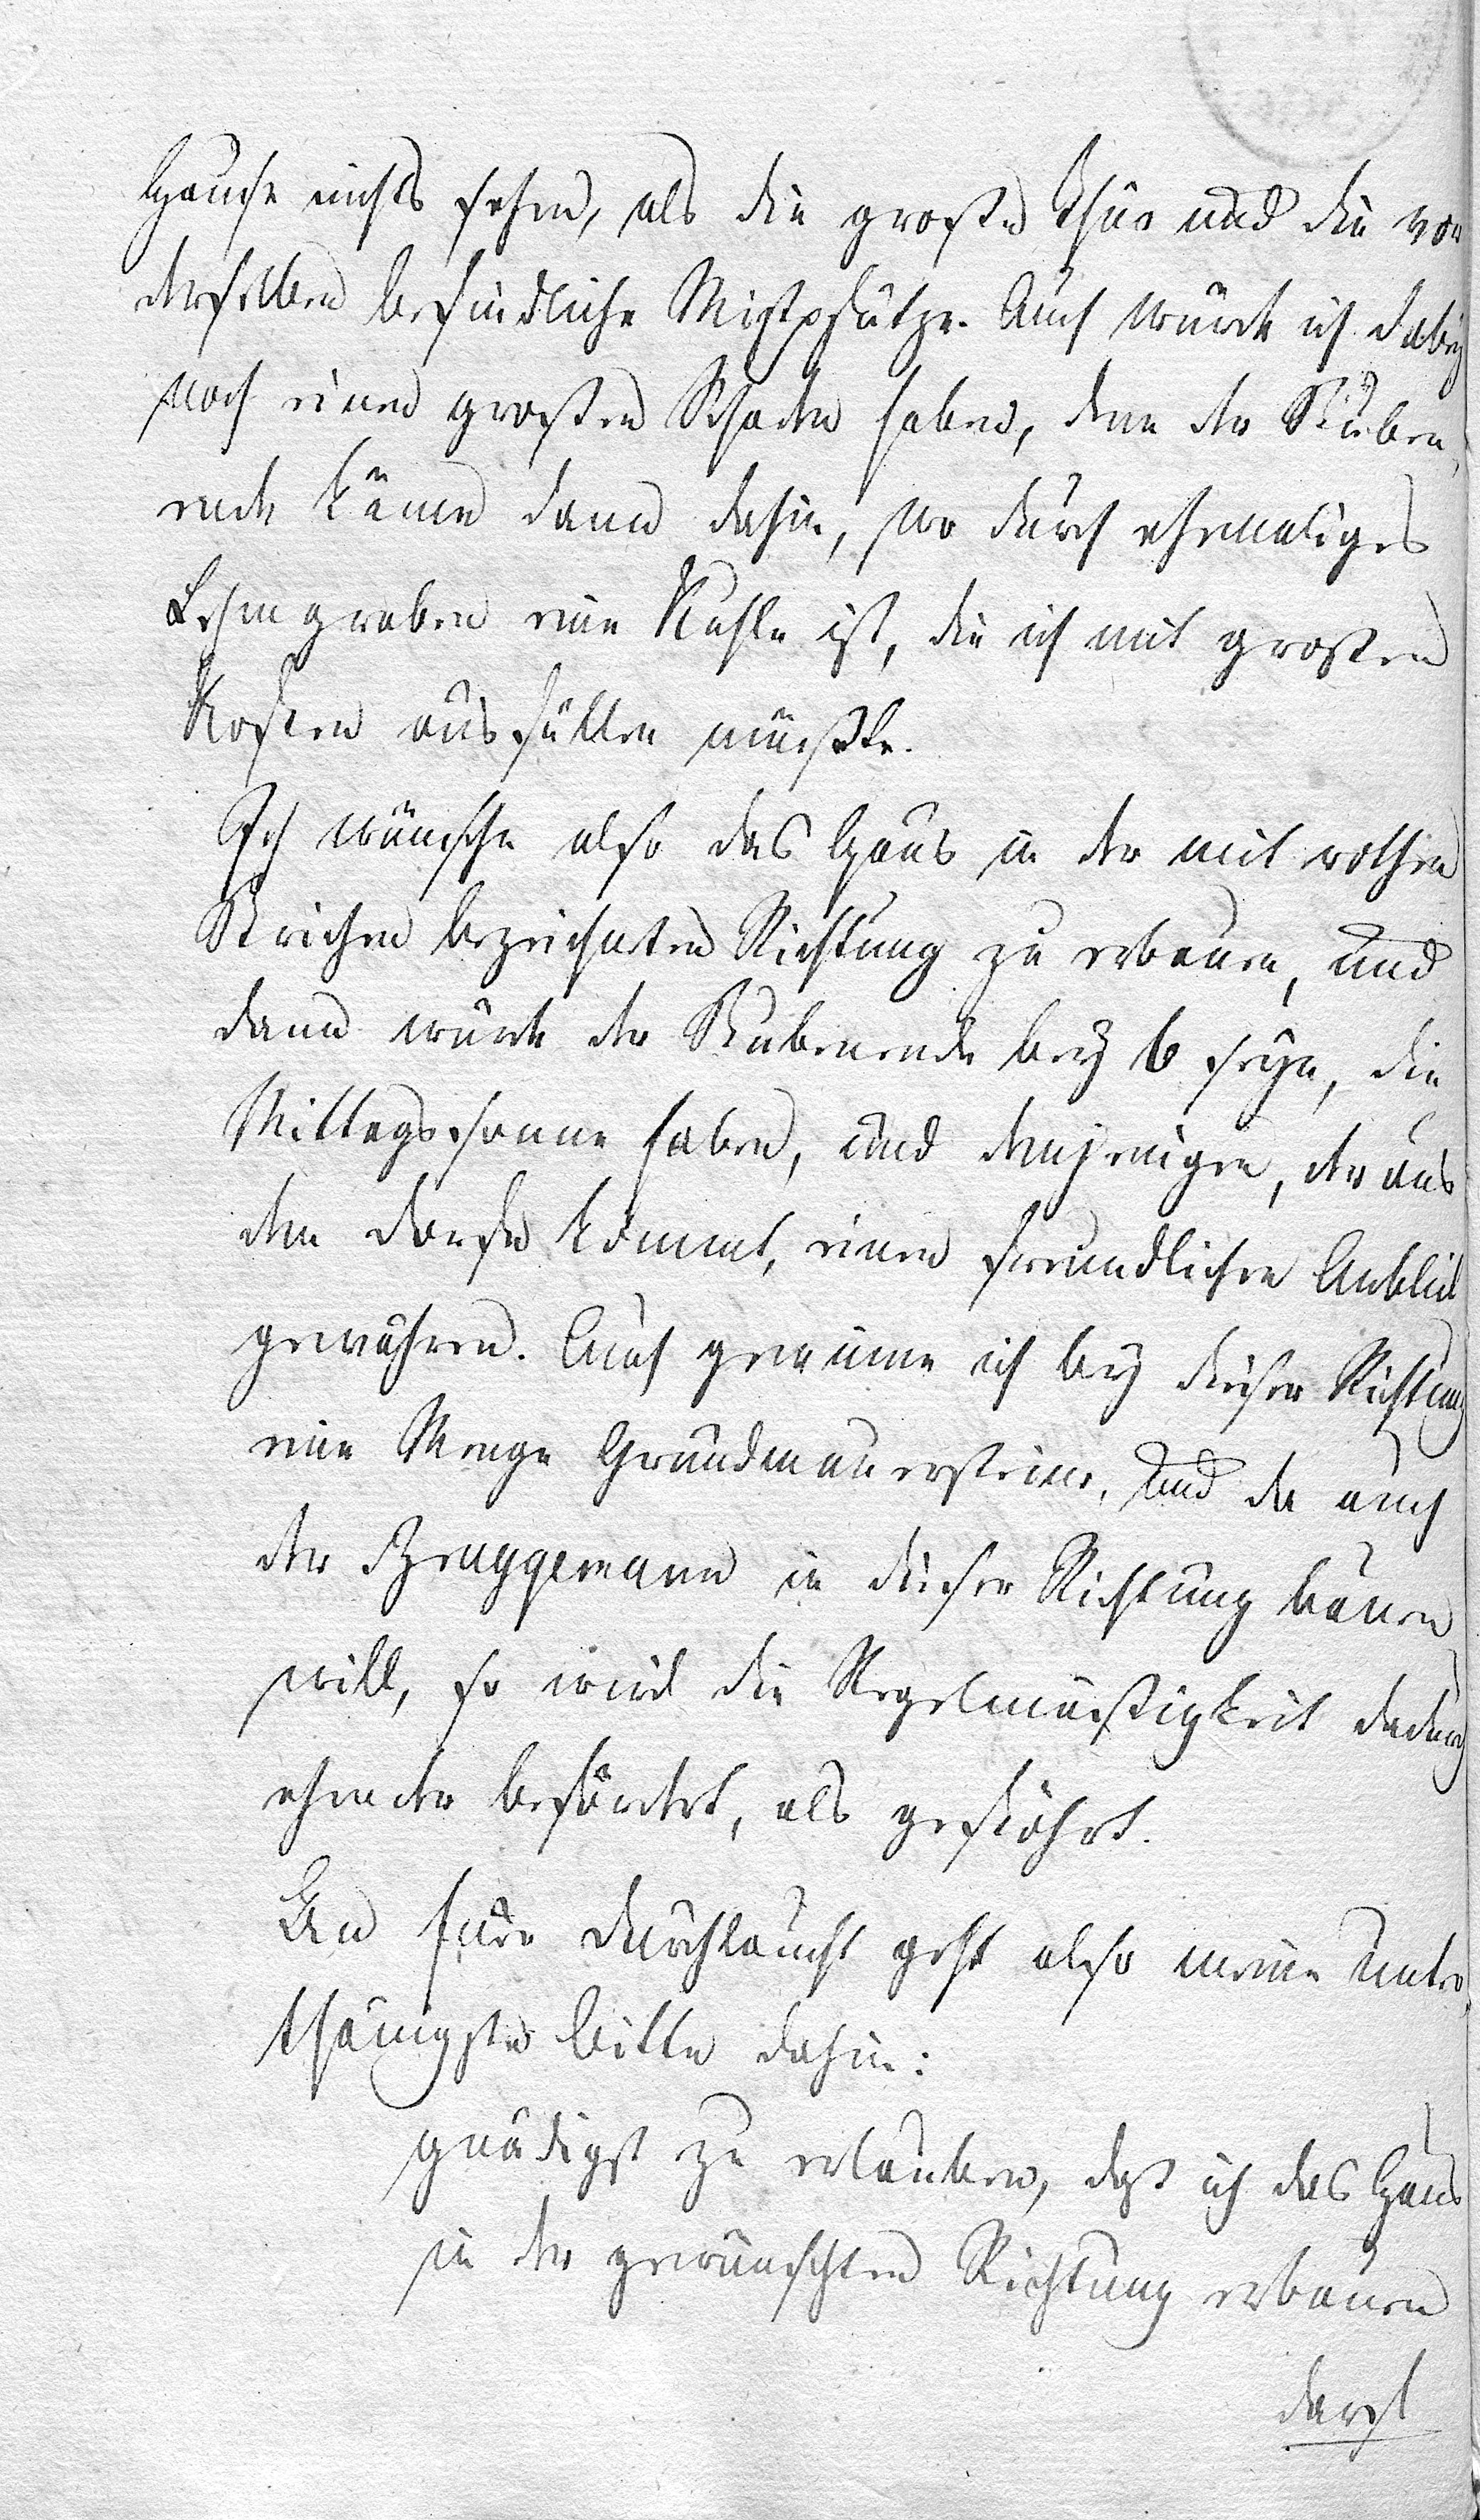 Hause nichts sehen, als die große Thür und die vor
derselben befindliche Mistpfütze. Auch würde ich dabey
noch einen großen Schaden haben, denn der Stuben,
ende käme dann dahin, wo durch ehemaliges
Lehmgraben eine Kuhle ist, die ich mit großen
Kosten ausfüllen müßte.
Ich wünsche also das Haus in der mit rothen
Strichen bezeichneten Richtung zu erbauen, und
dann würde der Stubenende bey b seyn, die
Mittagssonne haben, und demjenigen, der aus
dem Dorfe kömmt, einen freundlichen Anblick
gewähren. Auch gewinne ich bey dieser Richtung
eine Menge Grundmauersteine, und da auch
der Bruggemann in dieser Richtung bauen
will, so wird die Regelmäßigkeit dadurch
ehender befördert, als gestöhrt.
An Eure Durchlaucht geht also meine unter,
thänigste Bitte dahin:
gnädigst zu erlauben, daß ich das Haus
in der gewünschten Richtung erbauen
darf